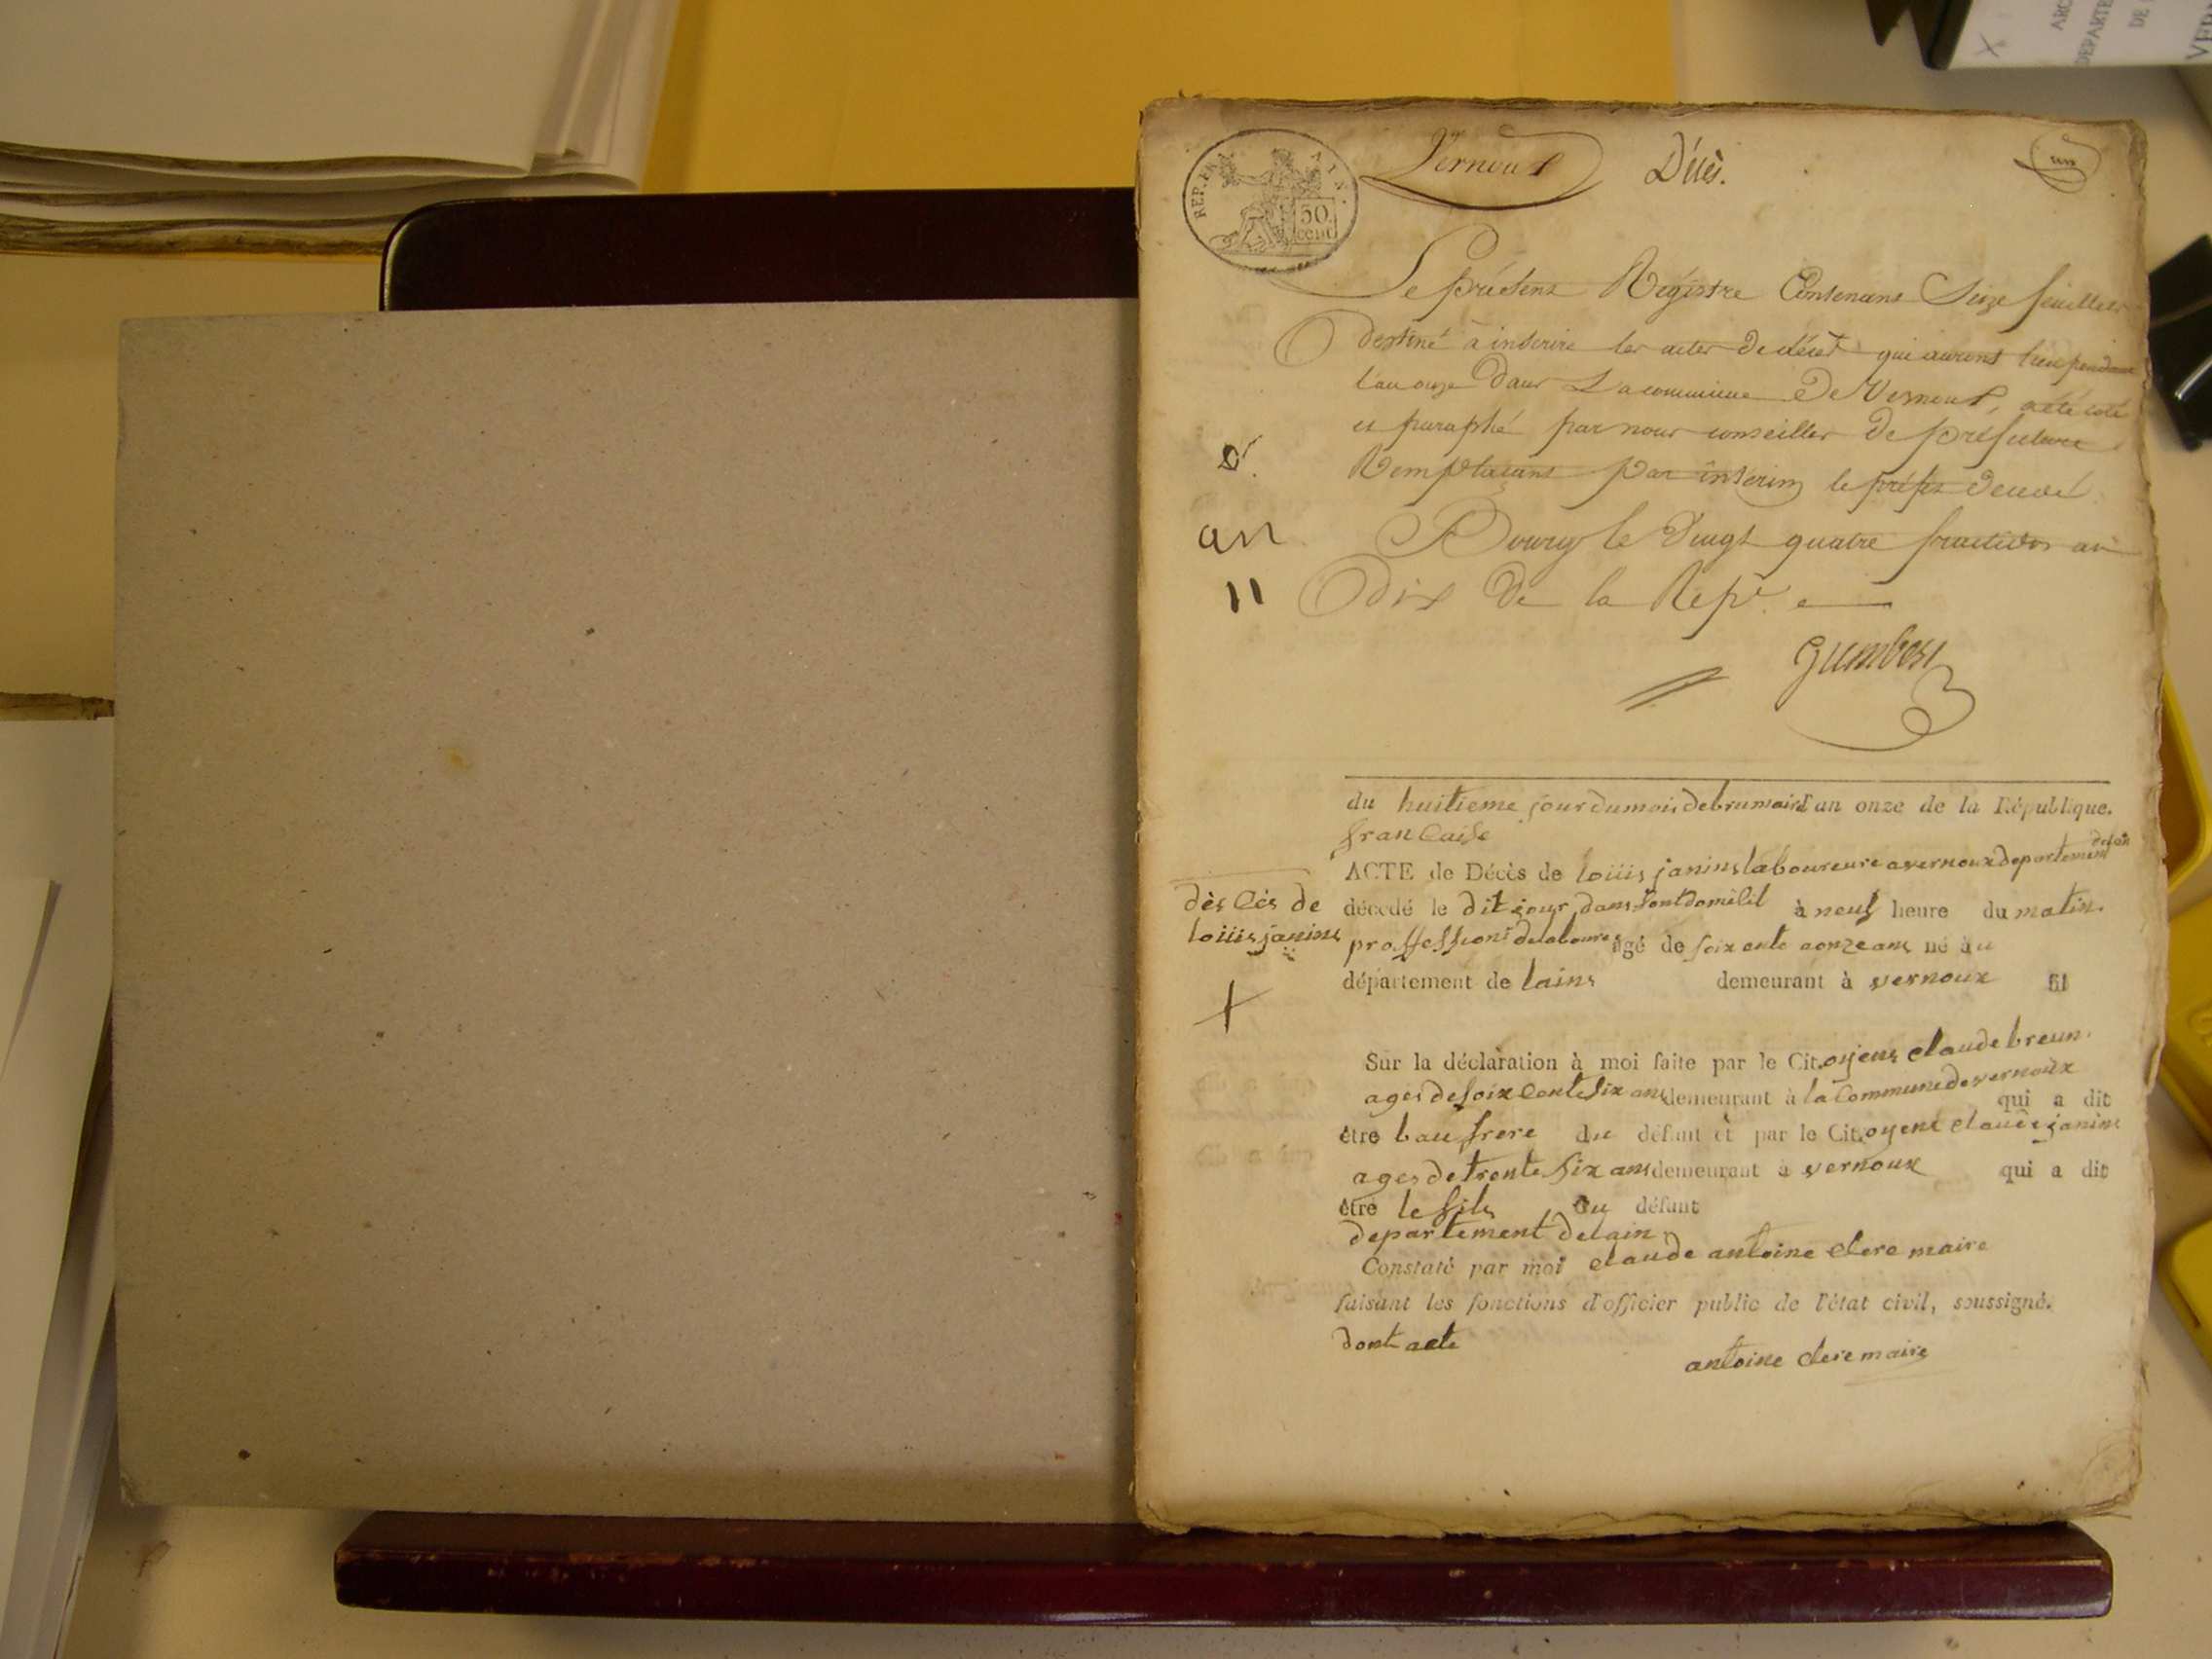 ARC
DEPARTE
DE
VER
REP. FRA
AIN.
50
cent
Vernoux
Décès.
un
Le présent Régistre Contenant Seize feuillets
destiné à inscrire les actes de décès qui auront lieu pendant
l'an onze dans La commune De Vernoux, a été coté
et paraphé par nous conseiller De préfecture
Remplacant par intérim le préfet
D.
an
11
Bourg le Vingt quatre fructidor an
Dix De la Repe.
Gumbert
du huitieme jour du mois de brumaire l'an onze de la République.
francaise
ACTE de Décès de loüis janins laboureure a vernoux departement delain
décédé le dit jour dans sont domilil à neuf heure du matin.
proffession de laboure agé de soixante aonze ans né au
département de lains demeurant à vernoux
dèscès de
loüis janins
Sur la déclaration à moi faite par le Citoyens claude breun.
ages de soixcente six ans demeurant à la Commune de vernoux qui a dit
être bau frere du défunt et par le Citoyens claude janins
ages de trente six ans demeurant à vernoux qui a dit
être le fils du défunt
departement delain
Constaté par moi claude antoine clere maire
faisant les fonctions d'officier public de l'état civil, soussigné.
dont acte
antoine clere maire